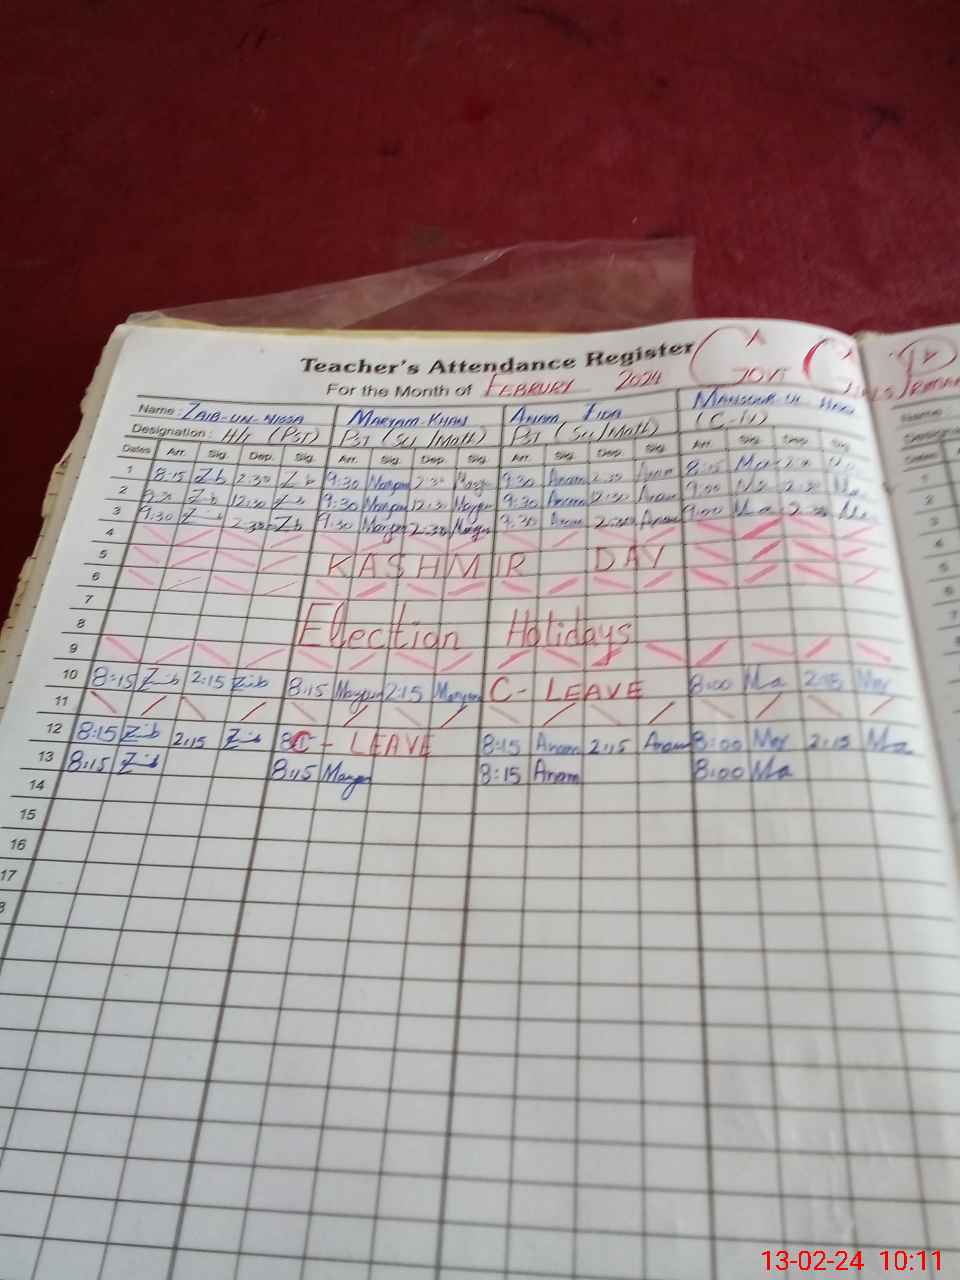 Teacher's Attendance Register
For the Month of FEBRURY 2024 GOVT
Name: ZAIB-UN-NISSA MARYAM KHAN ANAM FIDA MANSOOR UL
Designation: H/T (PST) PST (Sci/Math) PST (Sci/Math) (C-IV)
Dates Arr. Sig. Dep. Sig. Arr. Sig. Dep. Sig. Arr. Sig. Dep. Sig. Arr. Sig. Dep. Sig.
1 8:15 Z-b 2:30 Z-b 9:30 Maryam 2:30 Maryam 9:30 Anam 2:30 Anam 8:15 Ma
2 Z-b 12:30 Z-b 9:30 Maryam 12:30 Maryam 9:30 Anam 12:30 Anam 9:00
3 9:30 Z-b 2:30 Z-b 9:30 Maryam 2:30 Maryam 9:30 Anam 2:30 Anam 9:00 Ma 2:30 Ma
4
5 KASHMIR DAY
6
7
8 Election Holidays
9
10 8:15 Z-b 2:15 Z-b 8:15 Maryam 2:15 Maryam C- LEAVE 8:00 Ma 2:15
11
12 8:15 Z-b 2:15 Z-b C- LEAVE 8:15 Anam 2:15 Anam 8:00 2:15 Ma
13 8:15 Z-b 8:15 Maryam 8:15 Anam 8:00 Ma
14
15
16
17
13-02-24 10:11